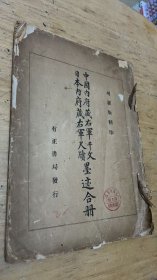 中國內府藏右軍千文墨迹合冊
日本內府藏右軍尺牘
有正書局發行